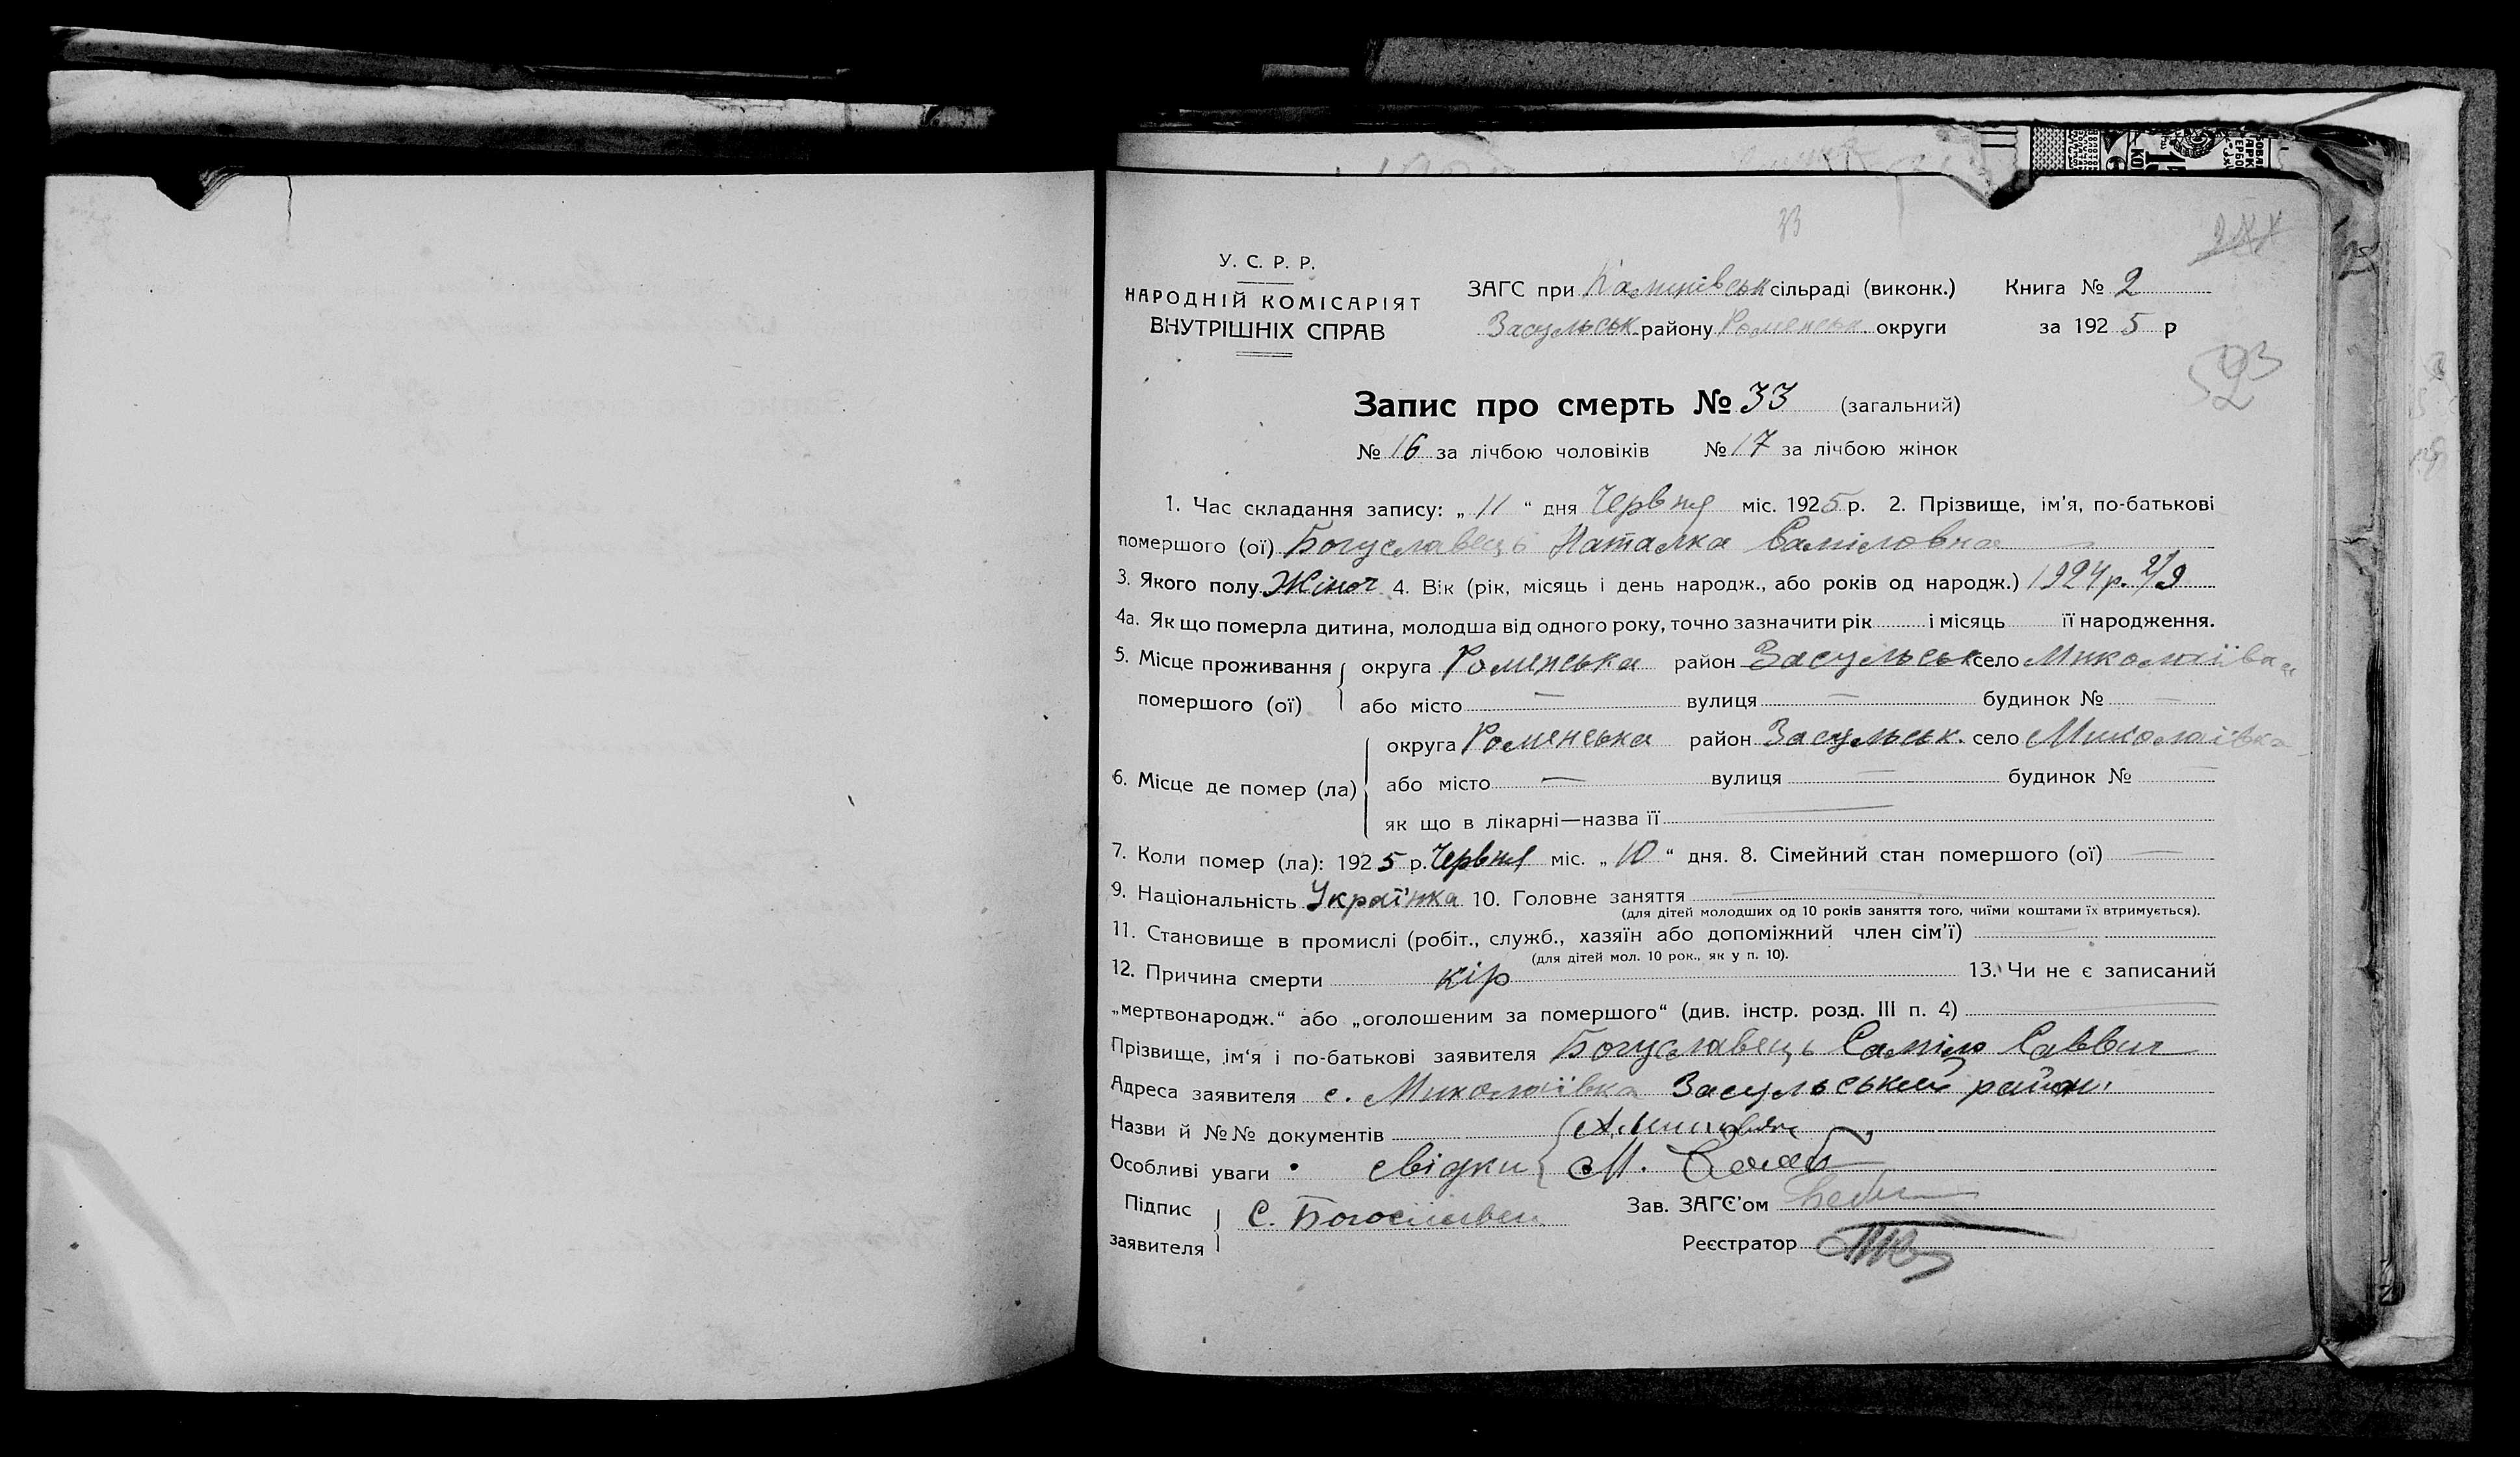 33
У. С. Р. Р.
НАРОДНІЙ КОМІСАРІЯТ
ВНУТРІШНІХ СПРАВ
ЗАГС при сільраді (виконк.) Книга № 2
Засульськ району Роменськ округи за 1925 р
53
Запис про смерть № 33 (загальний)
№ 16 за лічбою чоловіків № 17 за лічбою жінок
1. Час складання запису: „ 11 “ дня Червня міс. 1925 р. 2. Прізвище, ім'я, по-батькові
помершого (ої) Богуславець Наталка Саміловна
3. Якого полу Жіноч 4. Вік (рік, місяць і день народж., або років од народж.) 1924 р. 2/9
4а. Як що померла дитина, молодша від одного року, точно зазначити рік і місяць її народження.
5. Місце проживання округа Роменська район Засульськ село Миколаївка
помершого (ої) або місто — вулиця — будинок № —
округа Роменська район Засульськ. село Миколаївка
6. Місце де помер (ла) або місто — вулиця — будинок № —
як що в лікарні—назва її —
7. Коли помер (ла): 1925 р. Червня міс. „ 10 “ дня. 8. Сімейний стан помершого (ої) —
9. Національність Українка 10. Головне заняття —
(для дітей молодших од 10 років заняття того, чиїми коштами їх втримується).
11. Становище в промислі (робіт., служб., хазяїн або допоміжний член сім'ї) —
(для дітей мол. 10 рок., як у п. 10).
12. Причина смерти кір 13. Чи не є записаний
„мертвонародж.“ або „оголошеним за помершого“ (див. інстр. розд. III п. 4) —
Прізвище, ім'я і по-батькові заявителя Богуславець Саміло Саввич
Адреса заявителя с. Миколаївка Засульський район
Назви й №№ документів
Особливі уваги свідки М.
Підпис заявителя С. Зав. ЗАГС'ом
Реєстратор